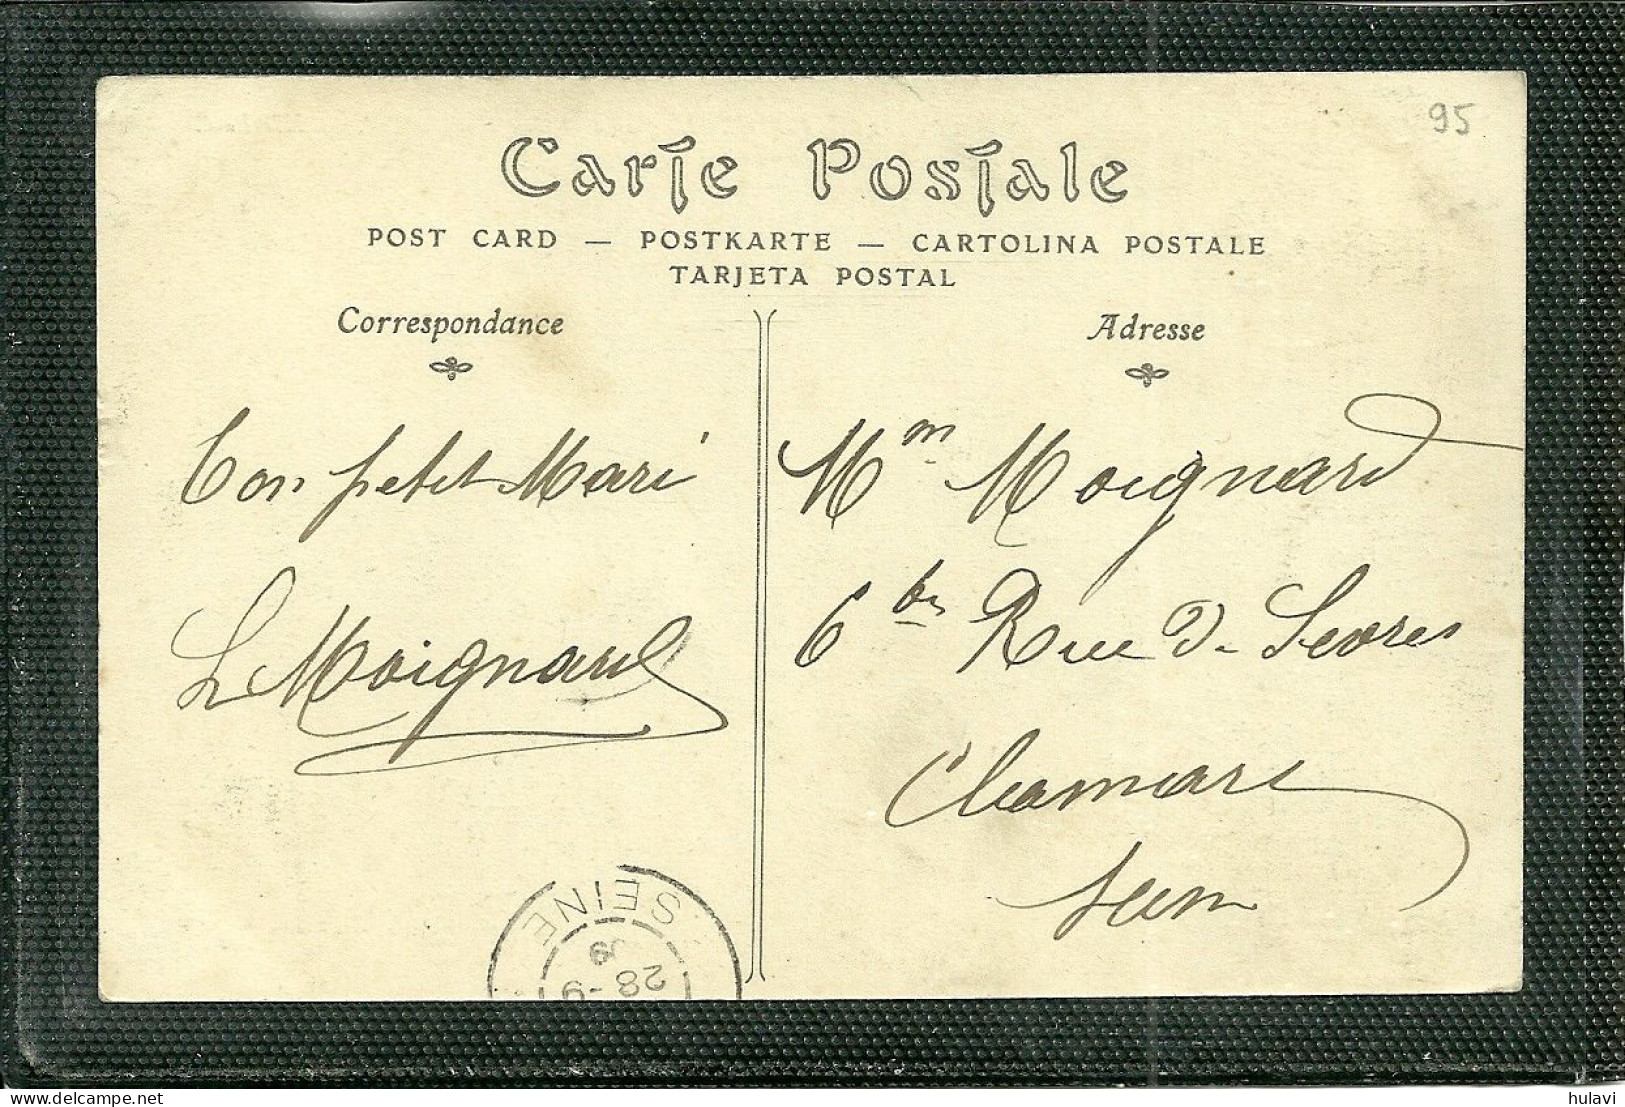 95
Carte Postale
POST CARD — POSTKARTE — CARTOLINA POSTALE
TARJETA POSTAL
Correspondance
Adresse
Ton petit Mari
L Moignard
Mm Moignard
6 bis Rue de Sevres
Clamart
Seine
SEINE
28-9
09
hulavi